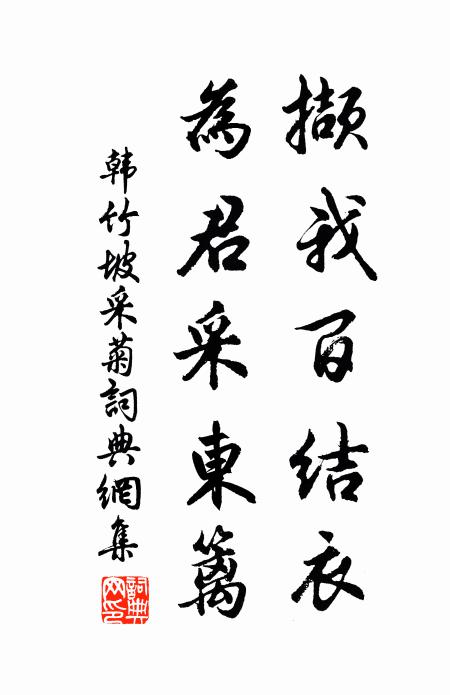 擷我百結衣
為君采東籬
韩竹坡采菊詞典網集
詞典網印